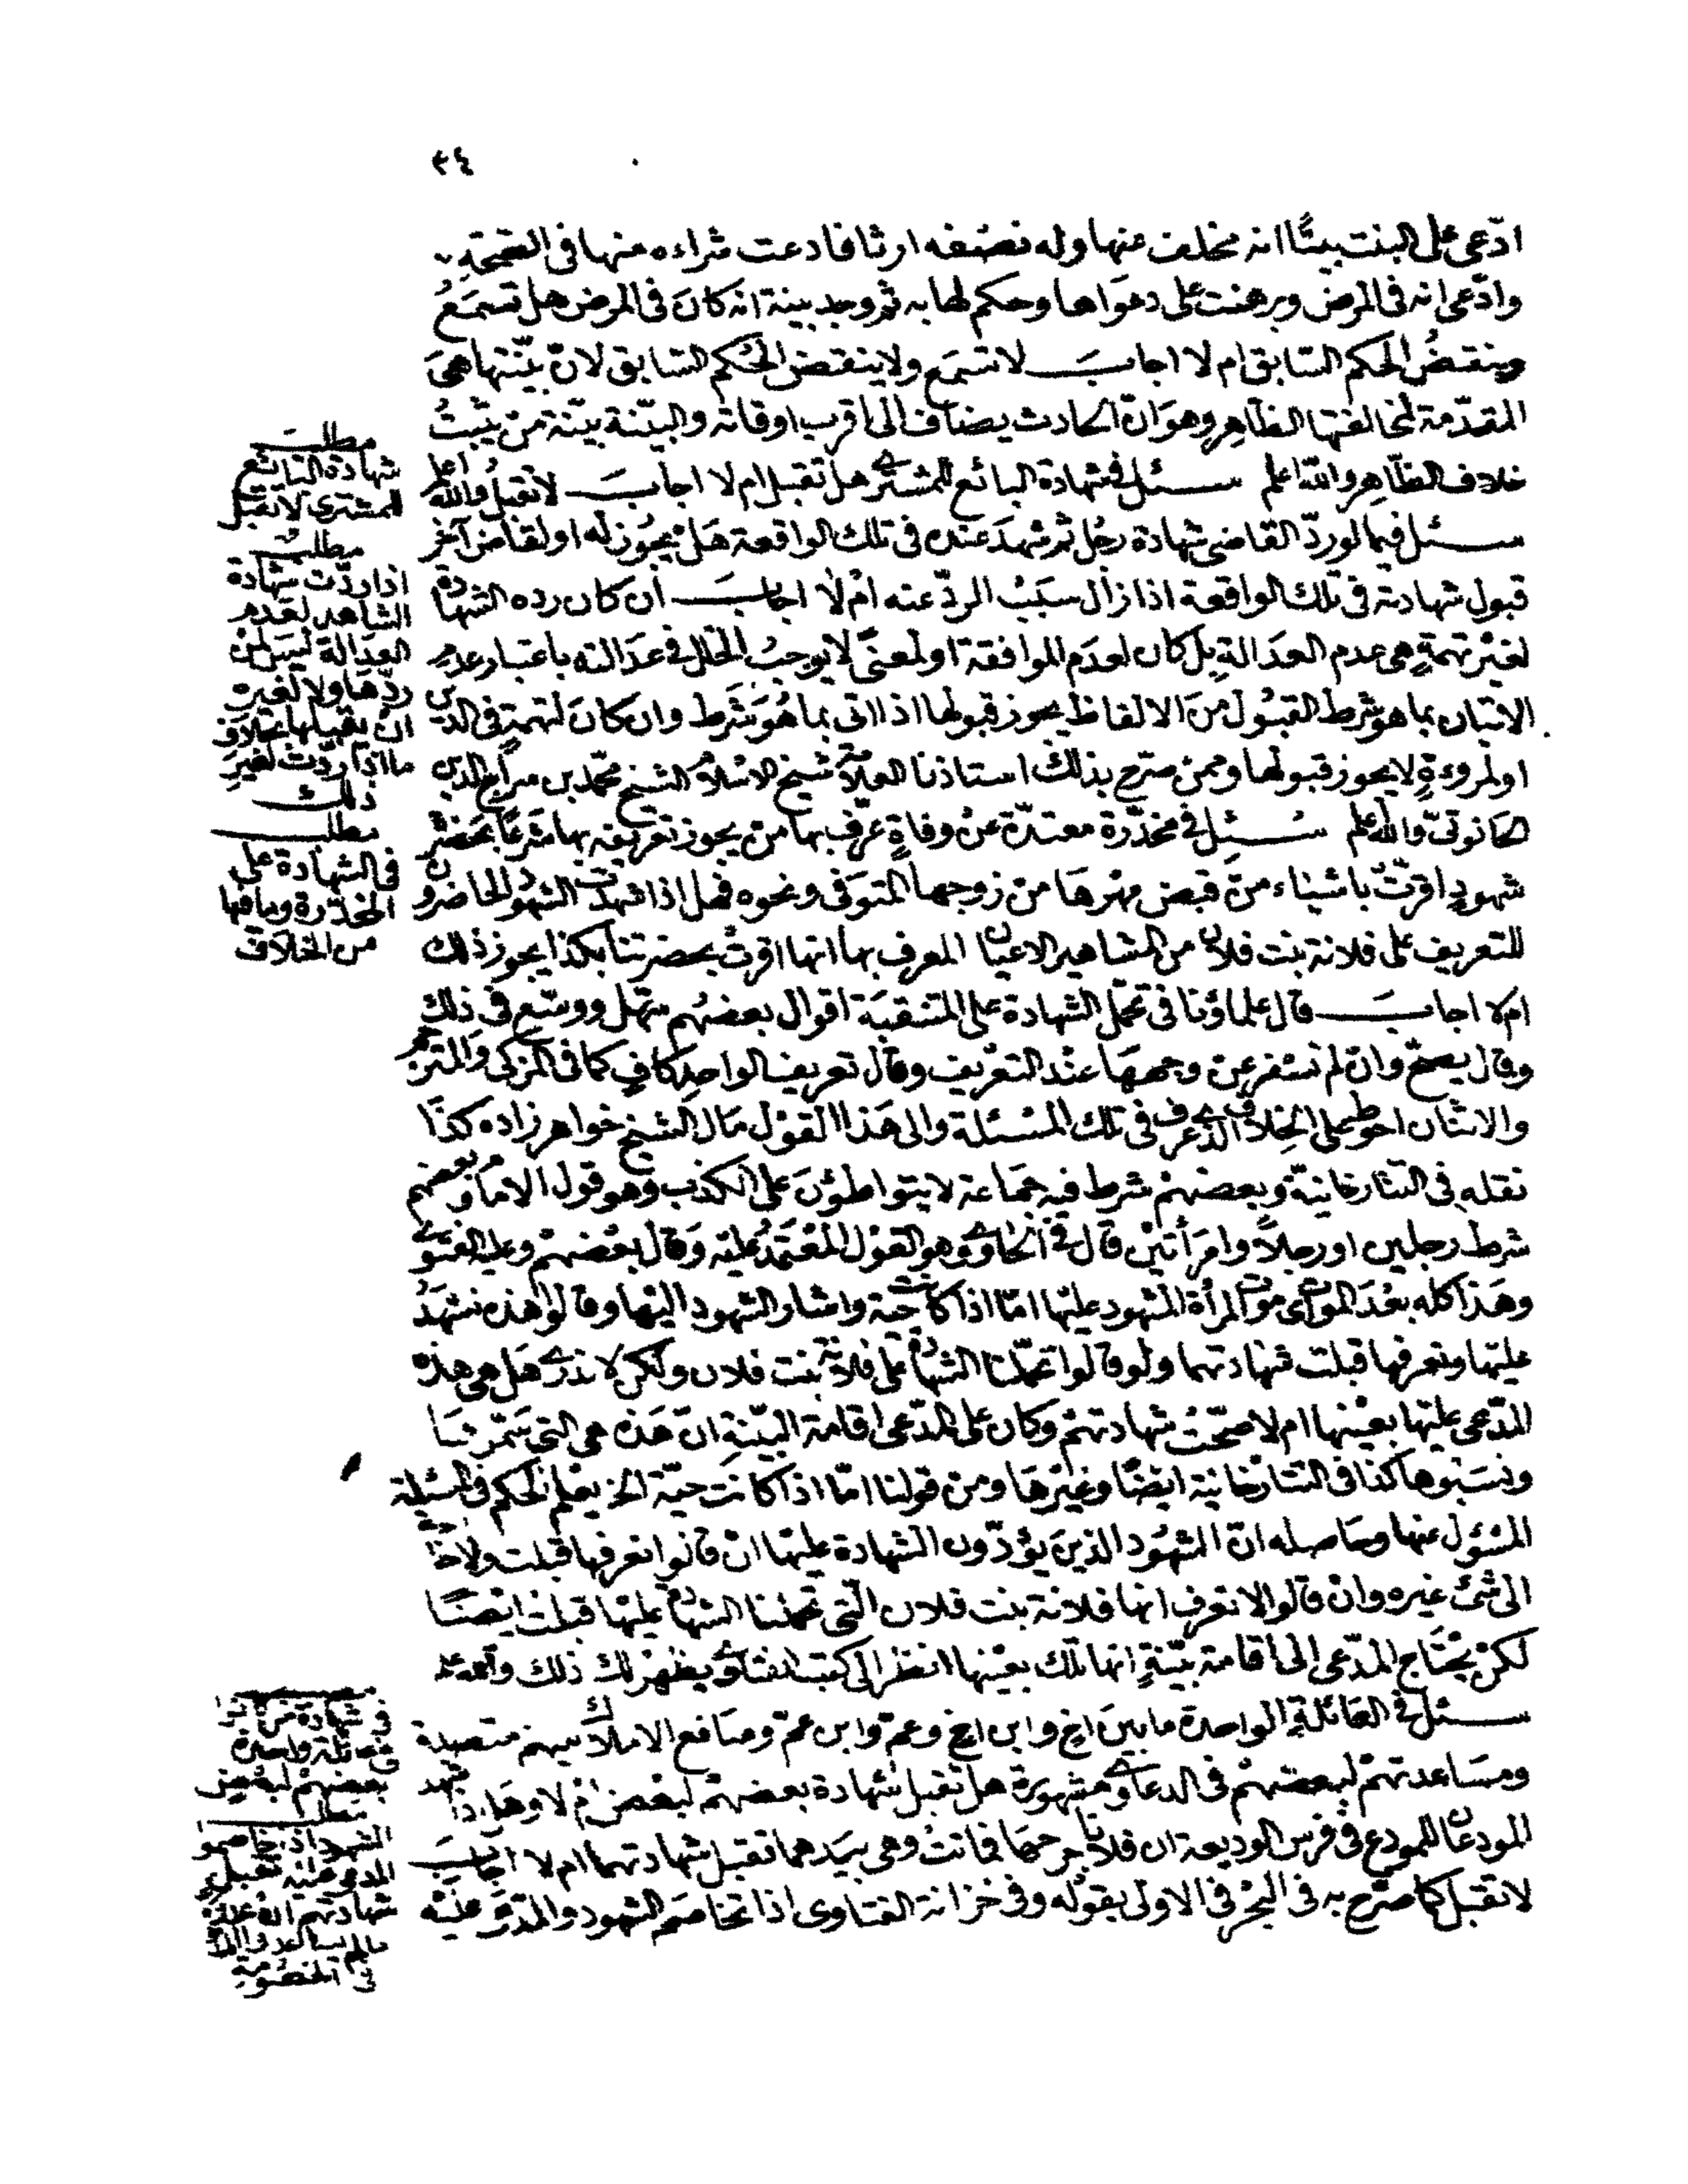 ٣٤
ادّعى على البنت بيتًا انه مخلف عنها وله نصفه ارثا فادعت شراءه منها فى الصحّة
وادّعى انه فى المرض وبرهنت على دعواها وحكم لها به ثم وجد بينة انه كان فى المرض هل تسمع
وينقض الحكم السابق ام لا اجاب لا تسمع ولا ينقض الحكم السابق لان بيّنتها هى
المقدّمة لمخالفتها الظاهر وهو ان الحادث يضاف الى اقرب اوقاته والبيّنة بيّنة من يثبت
خلاف الظاهر والله اعلم سئل فى شهادة البائع للمشترى هل تقبل ام لا اجاب لا تقبل والله اعلم
سئل فيما لو ردّ القاضى شهادة رجل ثم شهد عنده فى تلك الواقعة هل يجوز له او لقاض آخر
قبول شهادته فى تلك الواقعة اذا زال سبب الردّ عنه ام لا اجاب ان كان رده الشهادة
لغير تهمة هى عدم العدالة بل كان لعدم الموافقة او لمعنى لا يوجب الخلل فى عدالته باعتبار عدم
الاتيان بما هو شرط القبول من الالفاظ يجوز قبولها اذا اتى بما هو شرط وان كان لتهمة فى الدين
او لمروءة لا يجوز قبولها وممن صرّح بذلك استاذنا العلامة شيخ الاسلام الشيخ محمد بن سراج الدين
الحانوتىّ والله اعلم سئل فى مخدّرة معتدّة عن وفاة عرّف بها من يجوز تعريفه بها شرعا بحضرة
شهود اقرّت باشياء من قبض مهرها من زوجها المتوفى ونحوه فهل اذا شهدت الشهود الحاضرون
للتعريف على فلانة بنت فلان من المشاهير الاعيان المعرف بها انها اقرت بحضرتنا بكذا يجوز ذلك
ام لا اجاب قال علماؤنا فى تحمّل الشهادة على المتنقبة اقوال بعضهم سهّل ووسّع فى ذلك
وقال يصحّ وان لم تسفر عن وجهها عند التعريف وقال تعريف الواحد كاف كما فى المزكى والمترجم
والاثنان احوط على الخلاف الذى عرف فى تلك المسئلة والى هذا القول مال الشيخ خواهر زاده كذا
نقله فى التتارخانية وبعضهم شرط فيه جماعة لا يتواطؤن على الكذب وهو قول الامام وبعضهم
شرط رجلين او رجلاً وامرأتين قال فى الحاوى وهو القول المعتمد عليه وقال بعضهم وعليه الفتوى
وهذا كله بعد الموت اى موت المرأة المشهود عليها امّا اذا كانت حية واشار الشهود اليها وقالوا هذه نشهد
عليها ونعرفها قبلت شهادتهما ولو قالوا تحمّلنا الشهادة على فلانة بنت فلان ولكن لا ندرى هل هى هذه
المدّعى عليها بعينها ام لا صحّت شهادتهم وكان على المدّعى اقامة البيّنة ان هذه هى التى سمّوها
ونسبوها كذا فى التتارخانية ايضًا وغيرها ومن قولنا امّا اذا كانت حيّة الخ يعلم الحكم فى المسئلة
المسئول عنها وحاصله انّ الشهود الذين يؤدّون الشهادة عليها ان قالوا نعرفها قبلت ولا حاجة
الى شئ غيره وان قالوا لا نعرف انها فلانة بنت فلان التى تحملنا الشهادة عليها قبلت ايضًا
لكن يحتاج المدّعى الى اقامة بيّنة انها تلك بعينها انظر الى كتب الفتاوى يظهر لك ذلك والله اعلم
سئل فى العائلة الواحدة ما بين اخ وابن اخ وعمّ وابن عمّ ومنافع الاملاك بينهم متصلة
ومساعدتهم لبعضهم فى الدعاوى مشهورة هل تقبل شهادة بعضهم لبعض ام لا وهل اذا شهد
المودعان للمودع فى فرس الوديعة ان فلانا جرحها فماتت وهى بيدهما تقبل شهادتهما ام لا اجاب
لا تقبل كما صرّح به فى البحر فى الاولى بقوله وفى خزانة الفتاوى اذا تخاصم الشهود والمدّعى عليه
مطلب
شهادة البائع
للمشترى لا تقبل
مطلب
اذا ردّت شهادة
الشاهد لعدم
العدالة ليس لمن
ردّها ولا لغيره
ان يقبلها بخلاف
ما اذا ردّت لغير
ذلك
مطلب
فى الشهادة على
المخدّرة وما فيها
من الخلاف
فى شهادة من
عائلة واحدة
بعضهم لبعض
مطلب
الشهود اذا خاصموا
المدعى عليه تقبل
شهادتهم
فى الخصومة